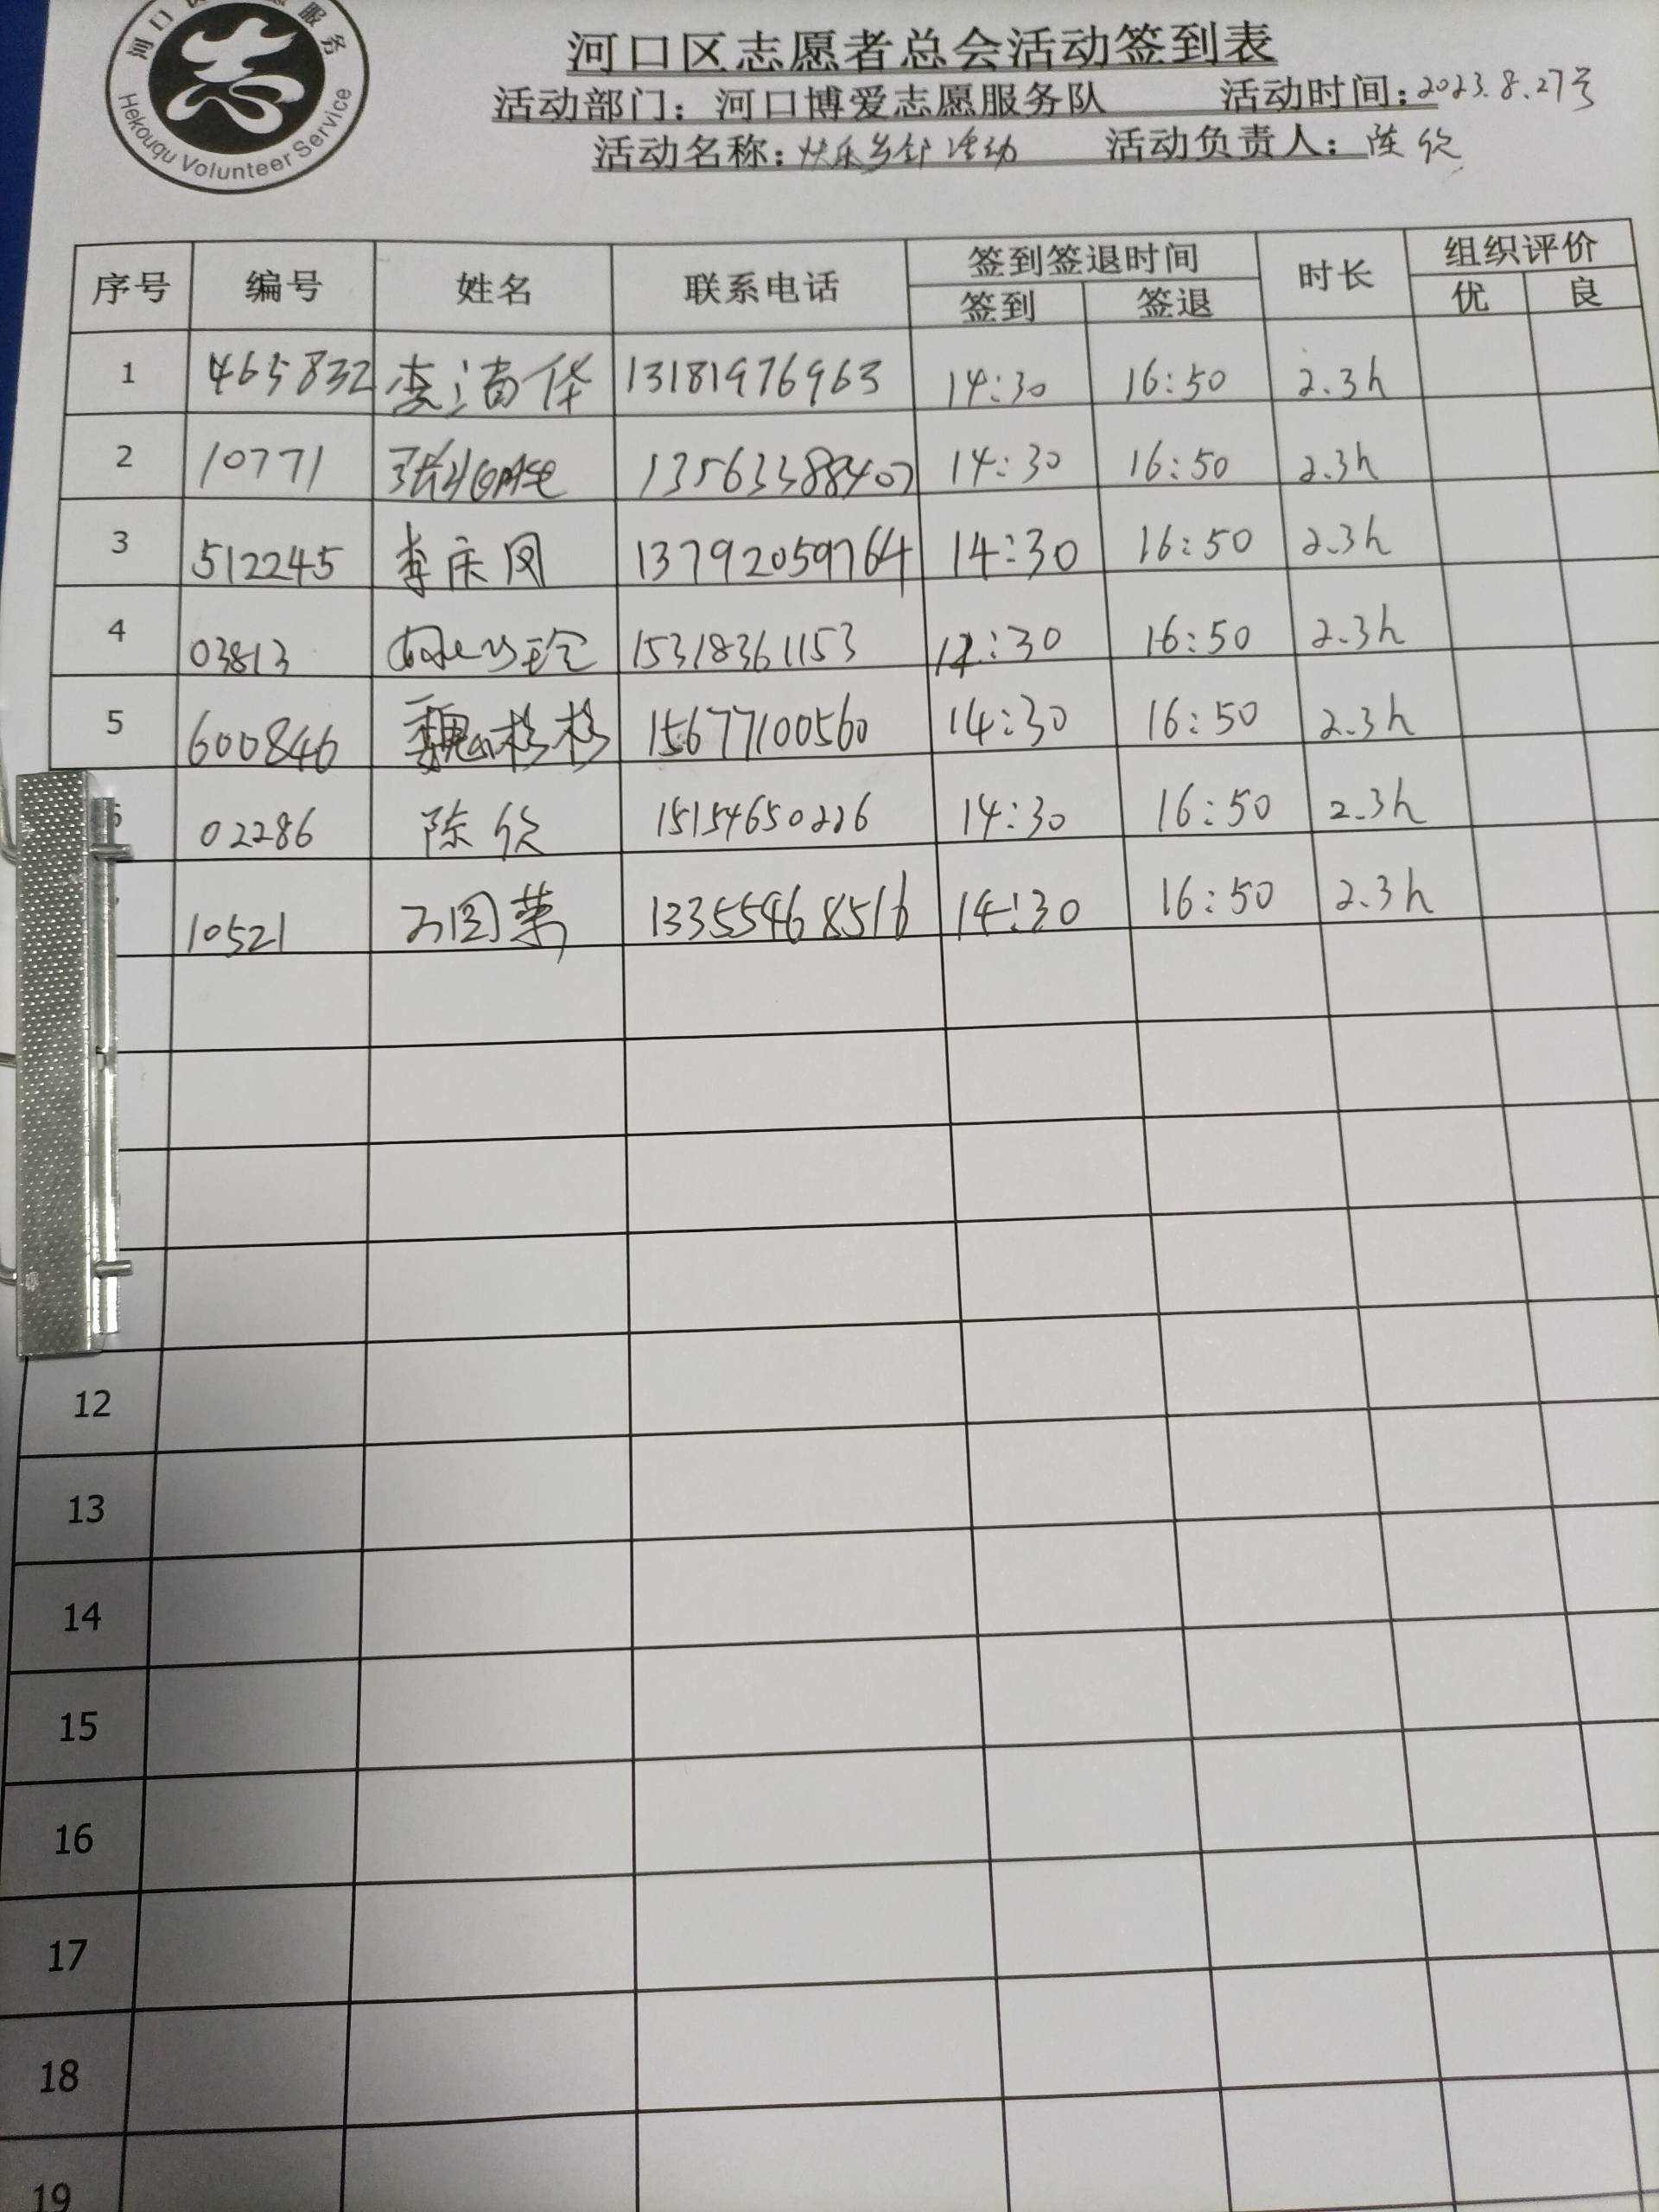 河口 服务
Hekouqu Volunteer Service
河口区志愿者总会活动签到表
活动部门：河口博爱志愿服务队 活动时间：2023.8.27号
活动名称：快乐乡邻活动 活动负责人：陈欣
序号 编号 姓名 联系电话 签到签退时间 时长 组织评价
签到 签退 优 良
1 465832 李清华 13181976963 14:30 16:50 2.3h
2 10771 张 13563388407 14:30 16:50 2.3h
3 512245 李庆凤 13792059764 14:30 16:50 2.3h
4 03813 珍 15318361153 14:30 16:50 2.3h
5 600846 魏彬彬 15677100560 14:30 16:50 2.3h
02286 陈欣 15154650226 14:30 16:50 2.3h
10521 13355468516 14:30 16:50 2.3h
12
13
14
15
16
17
18
19